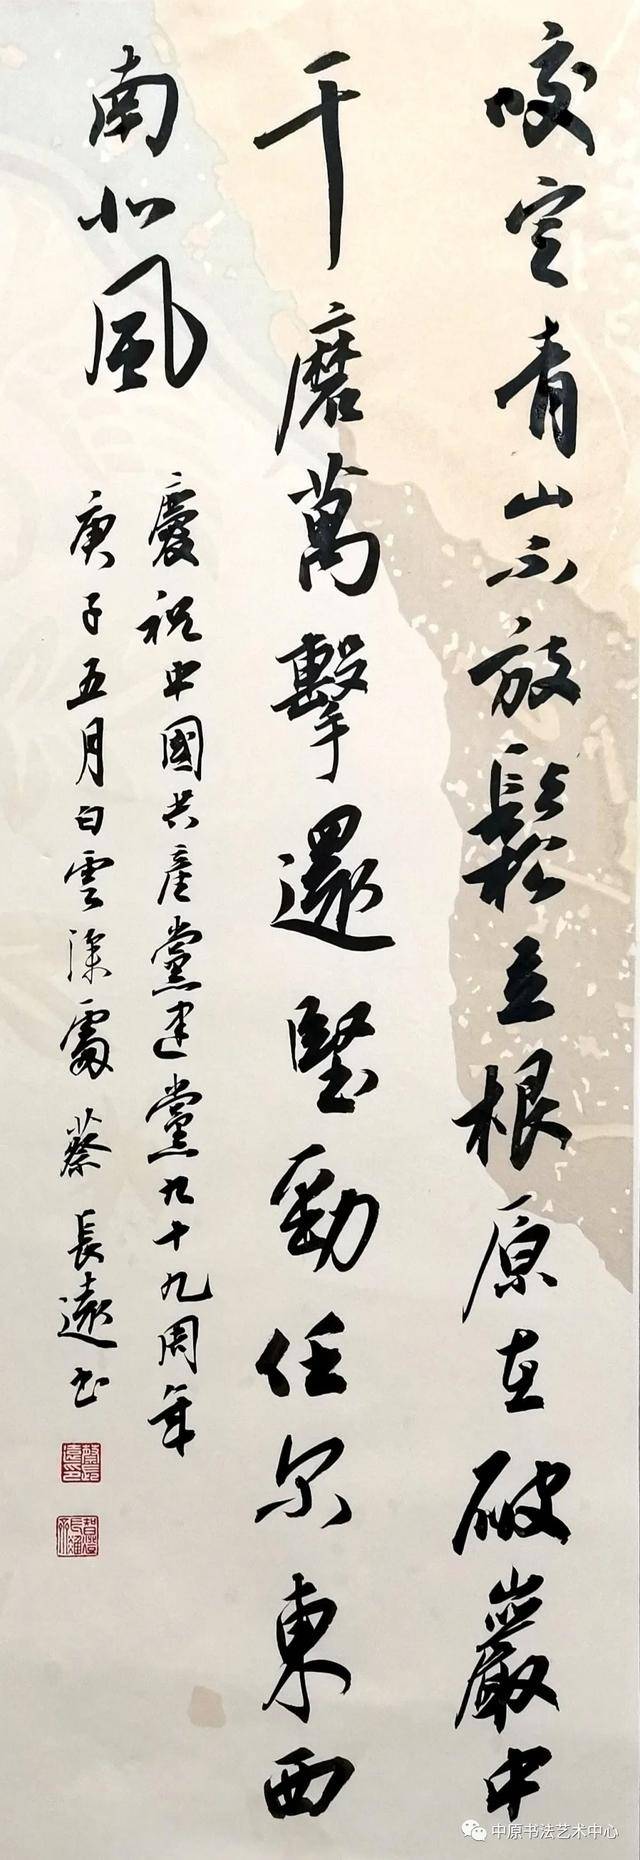 咬定青山不放鬆立根原在破巖中
千磨萬擊還堅勁任尔東西
南北風
慶祝中國共産黨建黨九十九周年
庚子五月白雲深處蔡長遠书
中原书法艺术中心